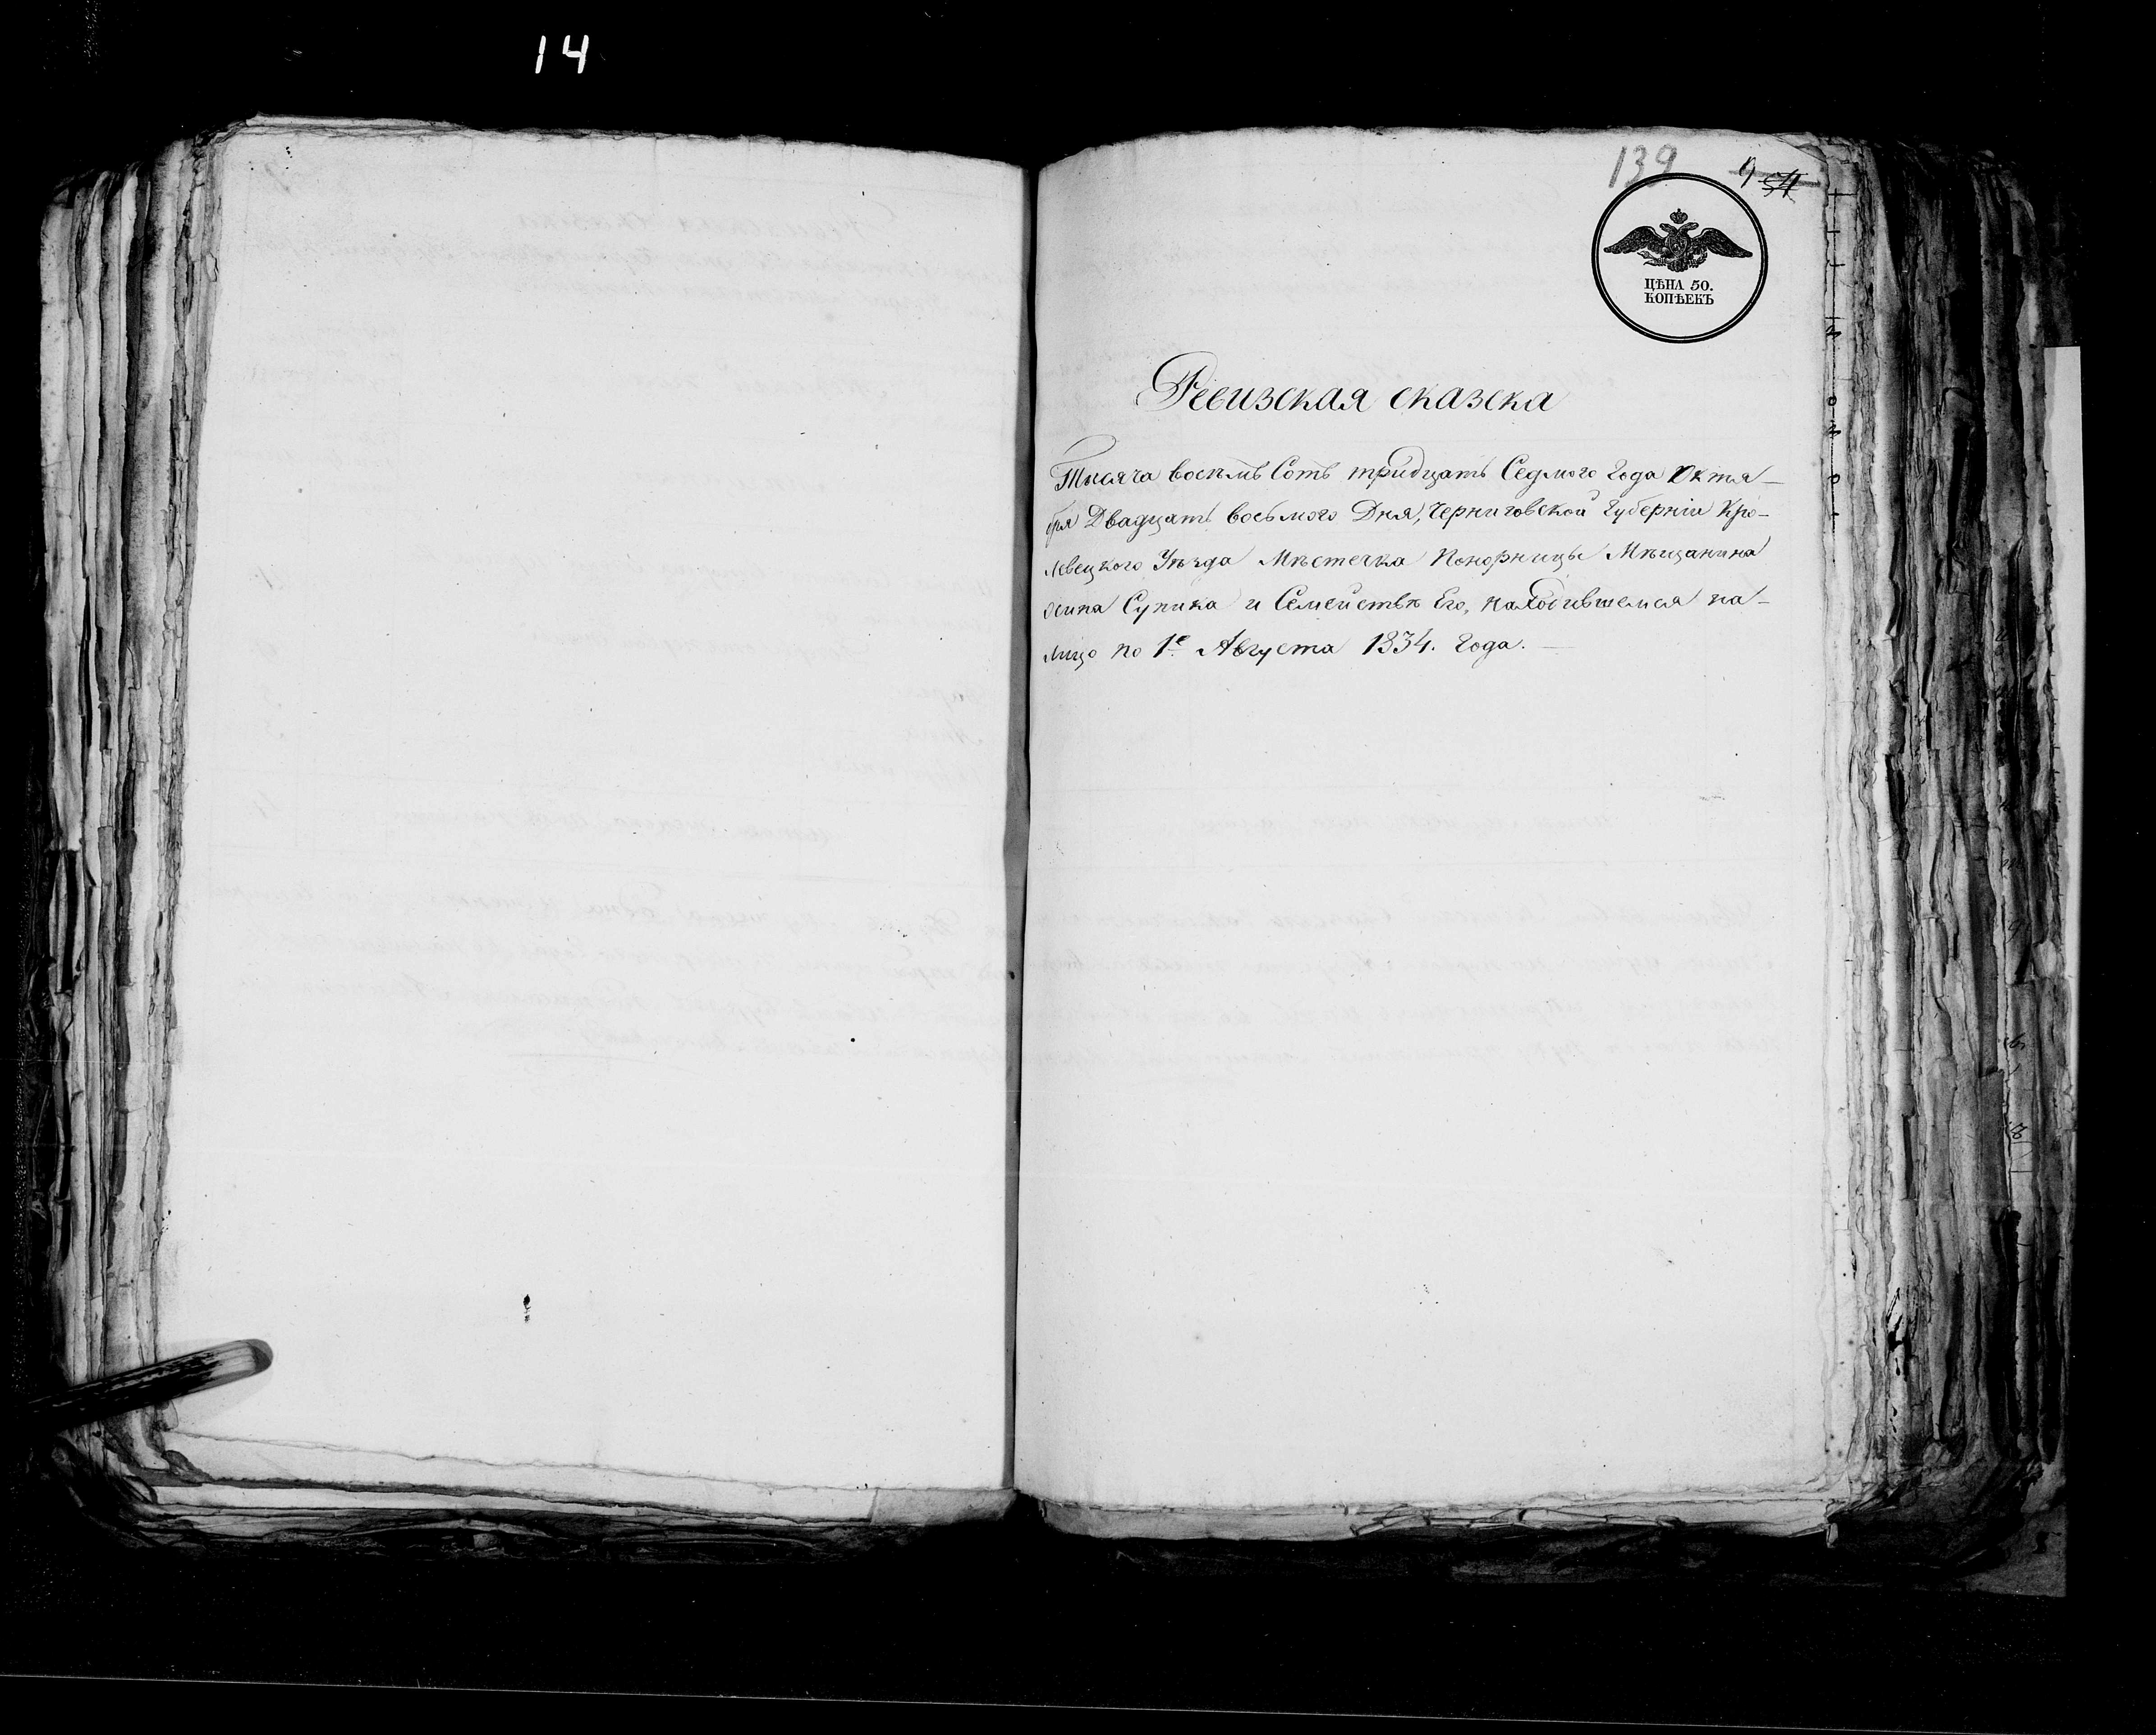 14
139
ЦѢНА 50.
КОПѢЕКЪ
Ревизская сказска
Тысяча восемь Сотъ тридцать Седмого Года Октя-
бря Двадцать восьмого Дня, Черниговской Губерніи Кро-
левецкого Уѣзда Мѣстечка Понорницы Мѣщанина
Осипа Супика и Семействѣ Его, находившемся на-
лицо по 1е Августа 1834. Года. —